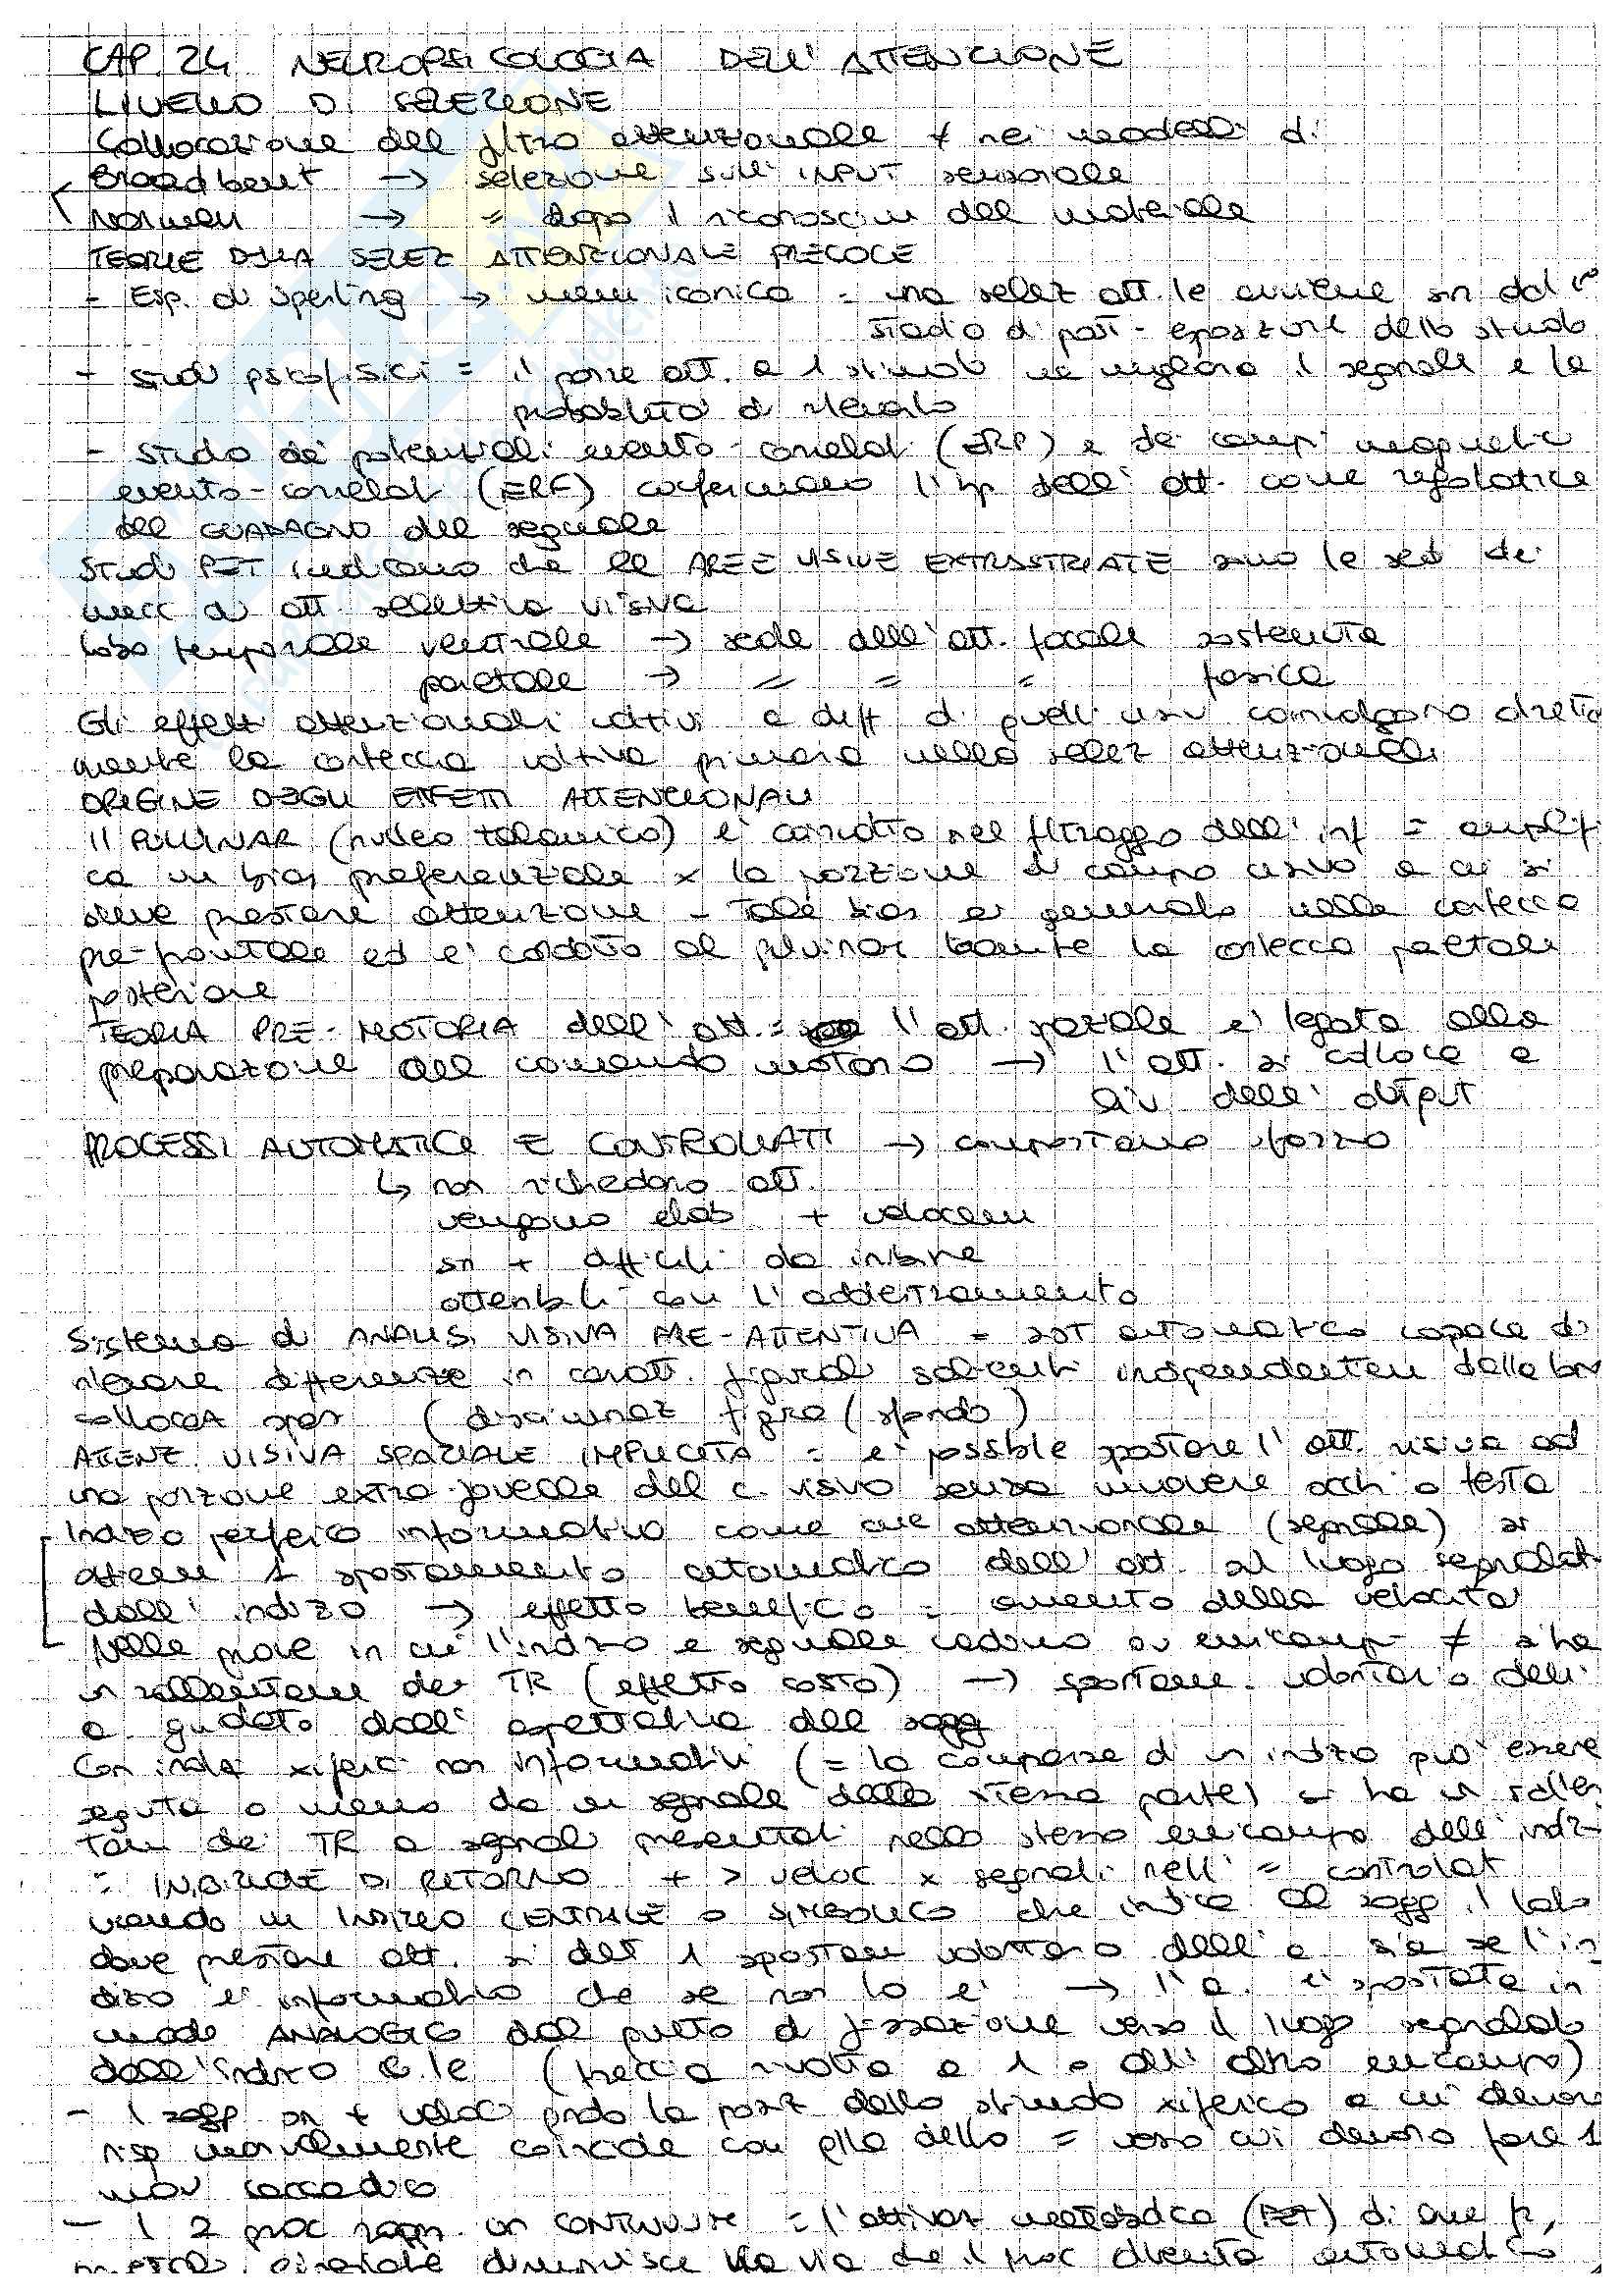 CAP. 24 NEUROPSICOLOGIA DELL'ATTENZIONE
LIVELLO DI SELEZIONE
Collocazione del filtro attenzionale ≠ nei modelli di
Broadbent → selezione sull'INPUT sensoriale
Norman → = dopo il riconoscim del materiale
TEORIE DELLA SELEZ ATTENZIONALE PRECOCE
- Esp. di Sperling → mem iconica = una selez att.le avviene sin dal 1°
stadio di post-esposizione dello stimolo
- studi psicofisici = il porre att. a 1 stimolo ne migliora il segnale e la
probabilità di rilevarlo
- studio dei potenziali evento-correlati (ERP) e dei campi magnetici
evento-correlati (ERF) confermano l'ip dell'att. come regolatrice
del GUADAGNO del segnale
Studi PET indicano che le AREE VISIVE EXTRASTRIATE sono le sedi dei
mecc di att. selettiva visiva
lobo temporale ventrale → sede dell'att. focale sostenuta
parietale → = = = fasica
Gli effetti attenzionali uditivi a diff di quelli visivi coinvolgono diretta
mente la corteccia uditiva primaria nella selez attenzionale
ORIGINE DEGLI EFFETTI ATTENZIONALI
Il PULVINAR (nucleo talamico) è coinvolto nel filtraggio dell'inf = amplifi
ca un bias preferenziale x la porzione di campo visivo a cui si
deve prestare attenzione - Tale bias è generato nella corteccia
pre-frontale ed è condotto al pulvinar tramite la corteccia parietale
posteriore
TEORIA PRE-MOTORIA dell'att. = l'att. spaziale è legata alla
preparazione del comando motorio → l'att. si colloca a
liv dell'output
PROCESSI AUTOMATICI E CONTROLLATI → comportano sforzo
↳ non richiedono att.
vengono elab + velocem
sn + difficili da inibire
ottenibili con l'addestramento
Sistema di ANALISI VISIVA PRE-ATTENTIVA = sist automatico capace di
rilevare differenze in caratt. figurali salienti indipendentem dalla loro
collocaz spaz (discriminaz figura/sfondo)
ATTENZ. VISIVA SPAZIALE IMPLICITA = è possibile spostare l'att. visiva ad
una porzione extra-foveale del c. visivo senza muovere occhi o testa
Indizio periferico informativo come cue attenzionale (segnale) si
ottiene 1 spostamento automatico dell'att. al luogo segnalato
dall'indizio → effetto beneficio = aumento della velocità
Nelle prove in cui l'indizio e segnale cadono su emicampi ≠ si ha
un rallentam dei TR (effetto costo) → spostam. volontario dell'
a guidato dall'aspettativa del sogg
Con indizi xiferici non informativi (= la comparsa di un indizio può essere
seguita o meno da un segnale dalla stessa parte) si ha un rallen
tam dei TR a segnali presentati nello stesso emicampo dell'indizi
= INIBIZIONE DI RITORNO + > veloc x segnali nell'= controlat
usando un INDIZIO CENTRALE o SIMBOLICO che indica al sogg il lato
dove prestare att. si det 1 spostam volontario dell'a. sia se l'in
dizio è informativo che se non lo è → l'a. è spostata in
modo ANALOGICO dal punto di fissazione verso il luogo segnalato
dall'indizio c.le (freccia rivolta a 1 o all'altro emicampo)
- I sogg sn + veloci qndo la posiz dello stimolo xiferico a cui devono
risp manualmente coincide con qlla dello = verso cui devono fare 1
mov saccadico
- I 2 proc rappr. un CONTINUUM = l'attivaz metabolica (PET) di aree
diminuisce via via che il proc diventa automatico